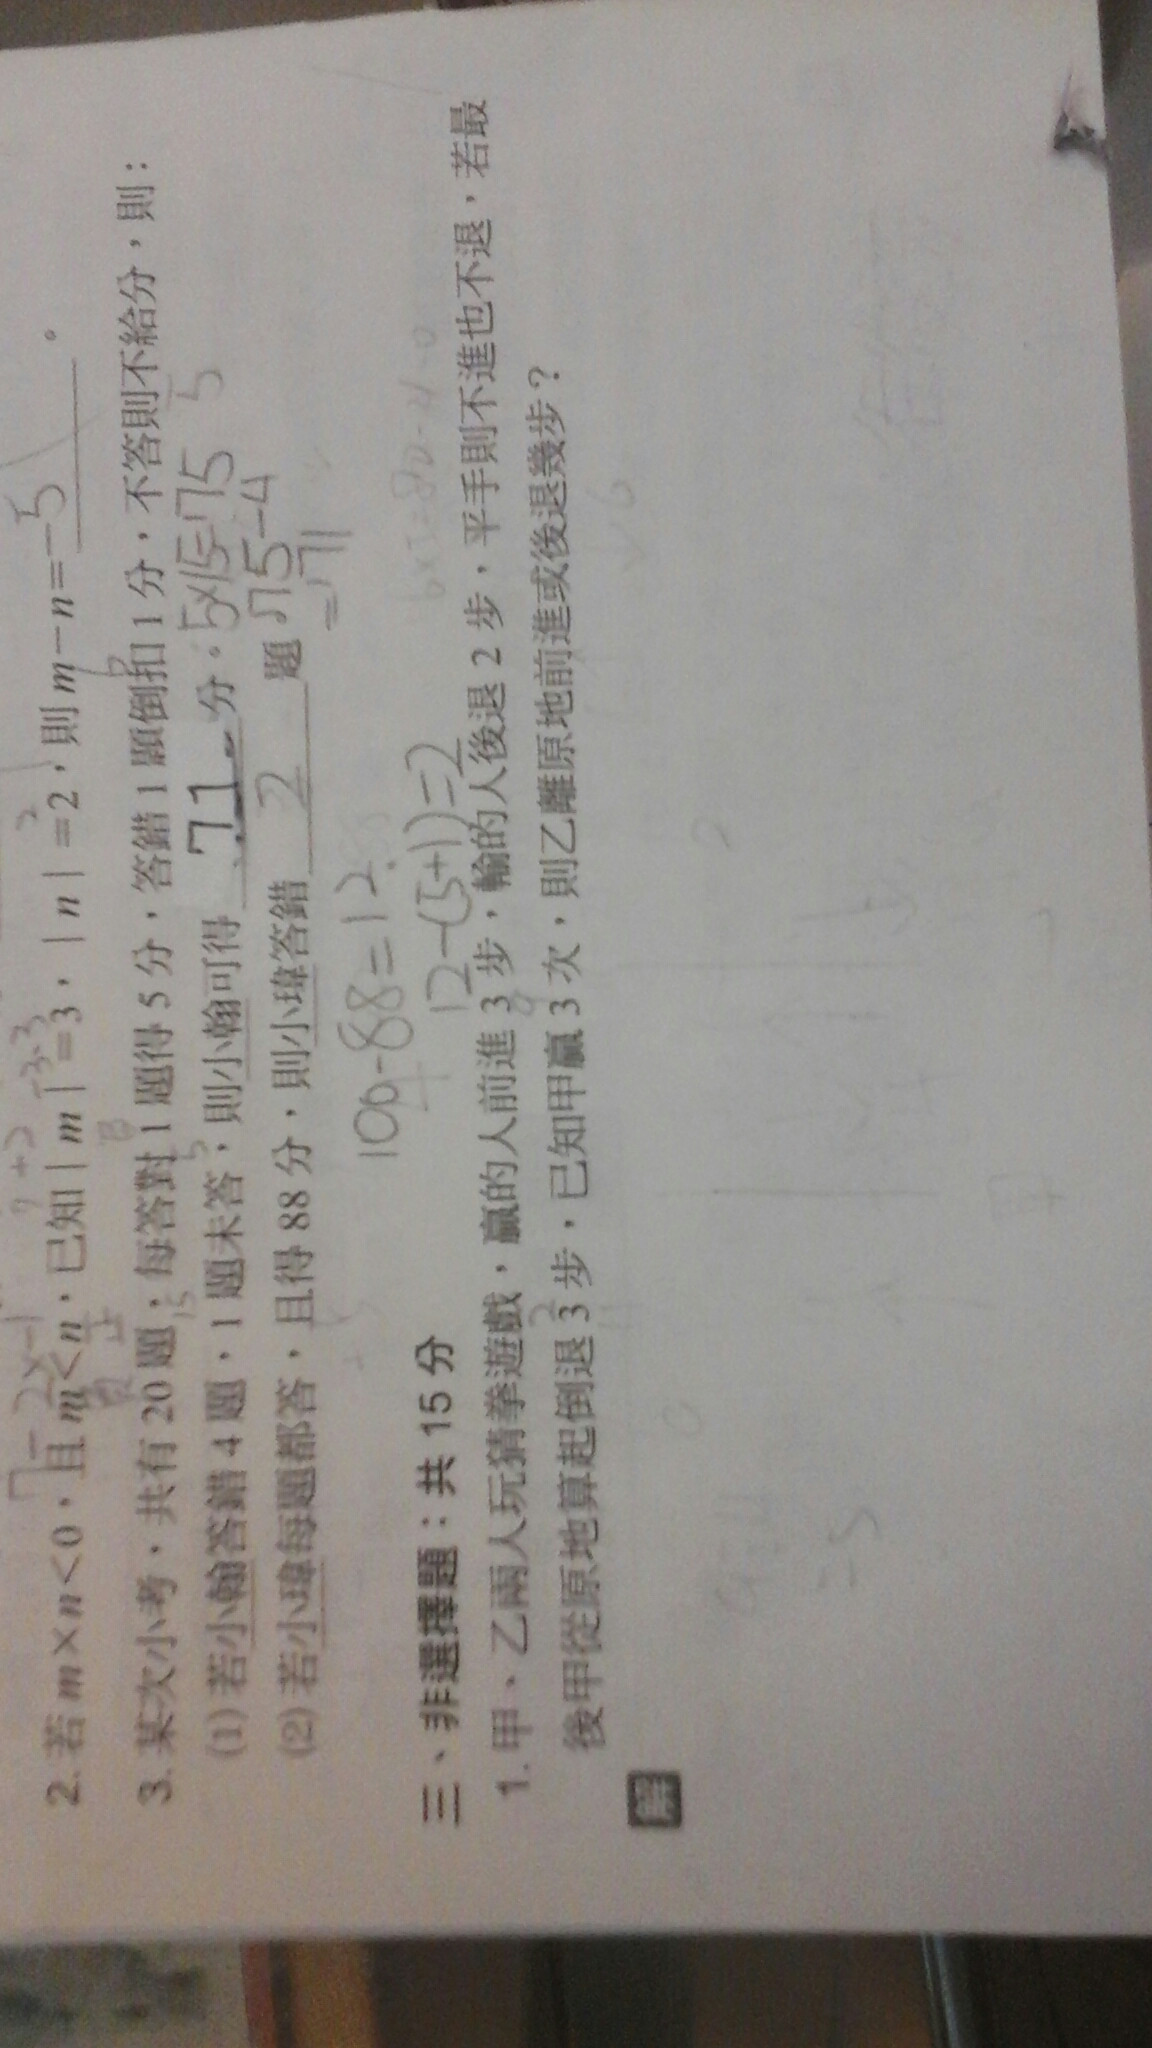 2. 若 m×n<0,且 m<n,已知|m|=3,|n|=2,則 m-n= -5 。
3. 某次小考,共有 20 題,每答對 1 題得 5 分,答錯 1 題倒扣 1 分,不答則不給分,則:
(1) 若小翰答錯 4 題,1 題未答,則小翰可得 71 分。
5×15=75
75-4
=71
(2) 若小瑋每題都答,且得 88 分,則小瑋答錯 2 題。
100-88=12
12-(5+1)=2
三、非選擇題:共 15 分
1. 甲、乙兩人玩猜拳遊戲,贏的人前進 3 步,輸的人後退 2 步,平手則不進也不退,若最
後甲從原地算起倒退 3 步,已知甲贏 3 次,則乙離原地前進或後退幾步?
解